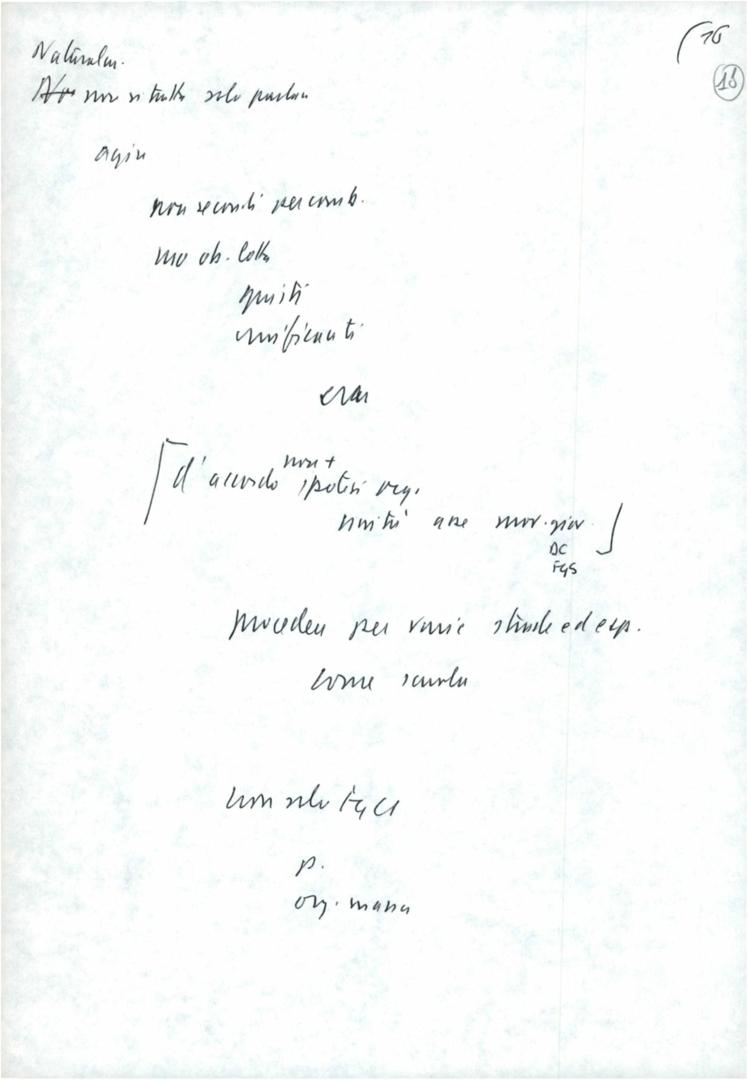 (16
16
Naturalm.
No non si tratta solo parlare
agire
non secondi per comb.
mo ob. lotta
giusti
unificanti
d'accordo non + ipotesi org.
unità ase mov. giov.
DC
FGS
procedere per varie strade ed esp.
come scuola
non solo FGCI
p.
org. massa